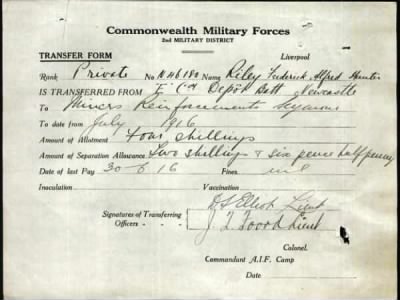 Commonwealth Military Forces
2nd MILITARY DISTRICT
TRANSFER FORM Liverpool
Rank Private No N46180 Riley Frederick Alfred Hunter
IS TRANSFERRED FROM E Coy Depôt Batt Newcastle
to Miners Reinforcements Seymour
To date from July 1916
Amount of Allotment Four shillings
Amount of Separation Allowance Two shillings & six pence half penny
Date of last Pay 30 6 16 Fines nil
Inoculation Vaccination
Signatures of Transferring Officers - Elliott Lieut
Lieut
Colonel.
Commandant A.I.F. Camp
Date